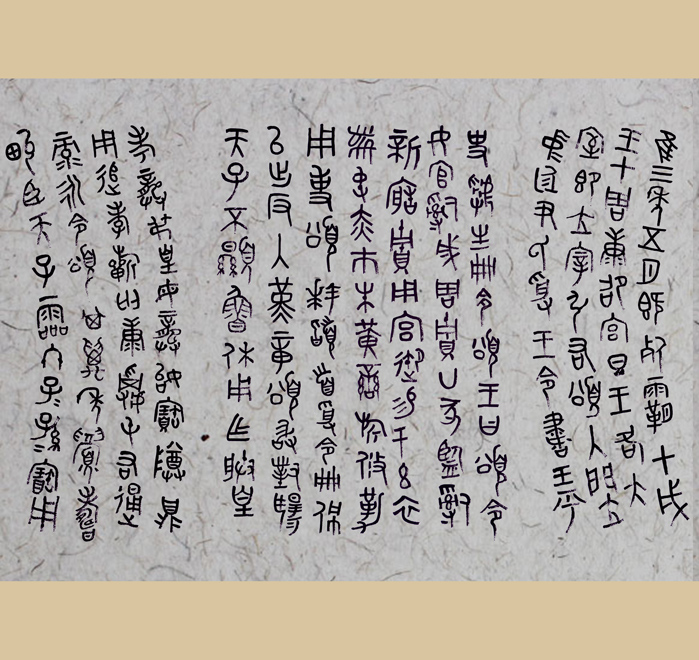 隹三年五月既死霸甲戌
王才周康卲宮旦王各大
室即立宰引右頌入門立
中廷尹氏受王令書王乎
史虢生冊令頌王曰頌令
女官𤔲成周貯廿家監𤔲
新造貯用宮御易女玄衣
黹屯赤巿朱黃䜌旂攸勒
用事頌拜稽首受令冊佩
以出反入堇章頌敢對揚
天子不顯魯休用乍朕皇
考龏弔皇母龏始寶尊鼎
用追孝祈匄康𠭯屯右通
彔永令頌其萬年眉壽
畯臣天子霝冬子孫寶用